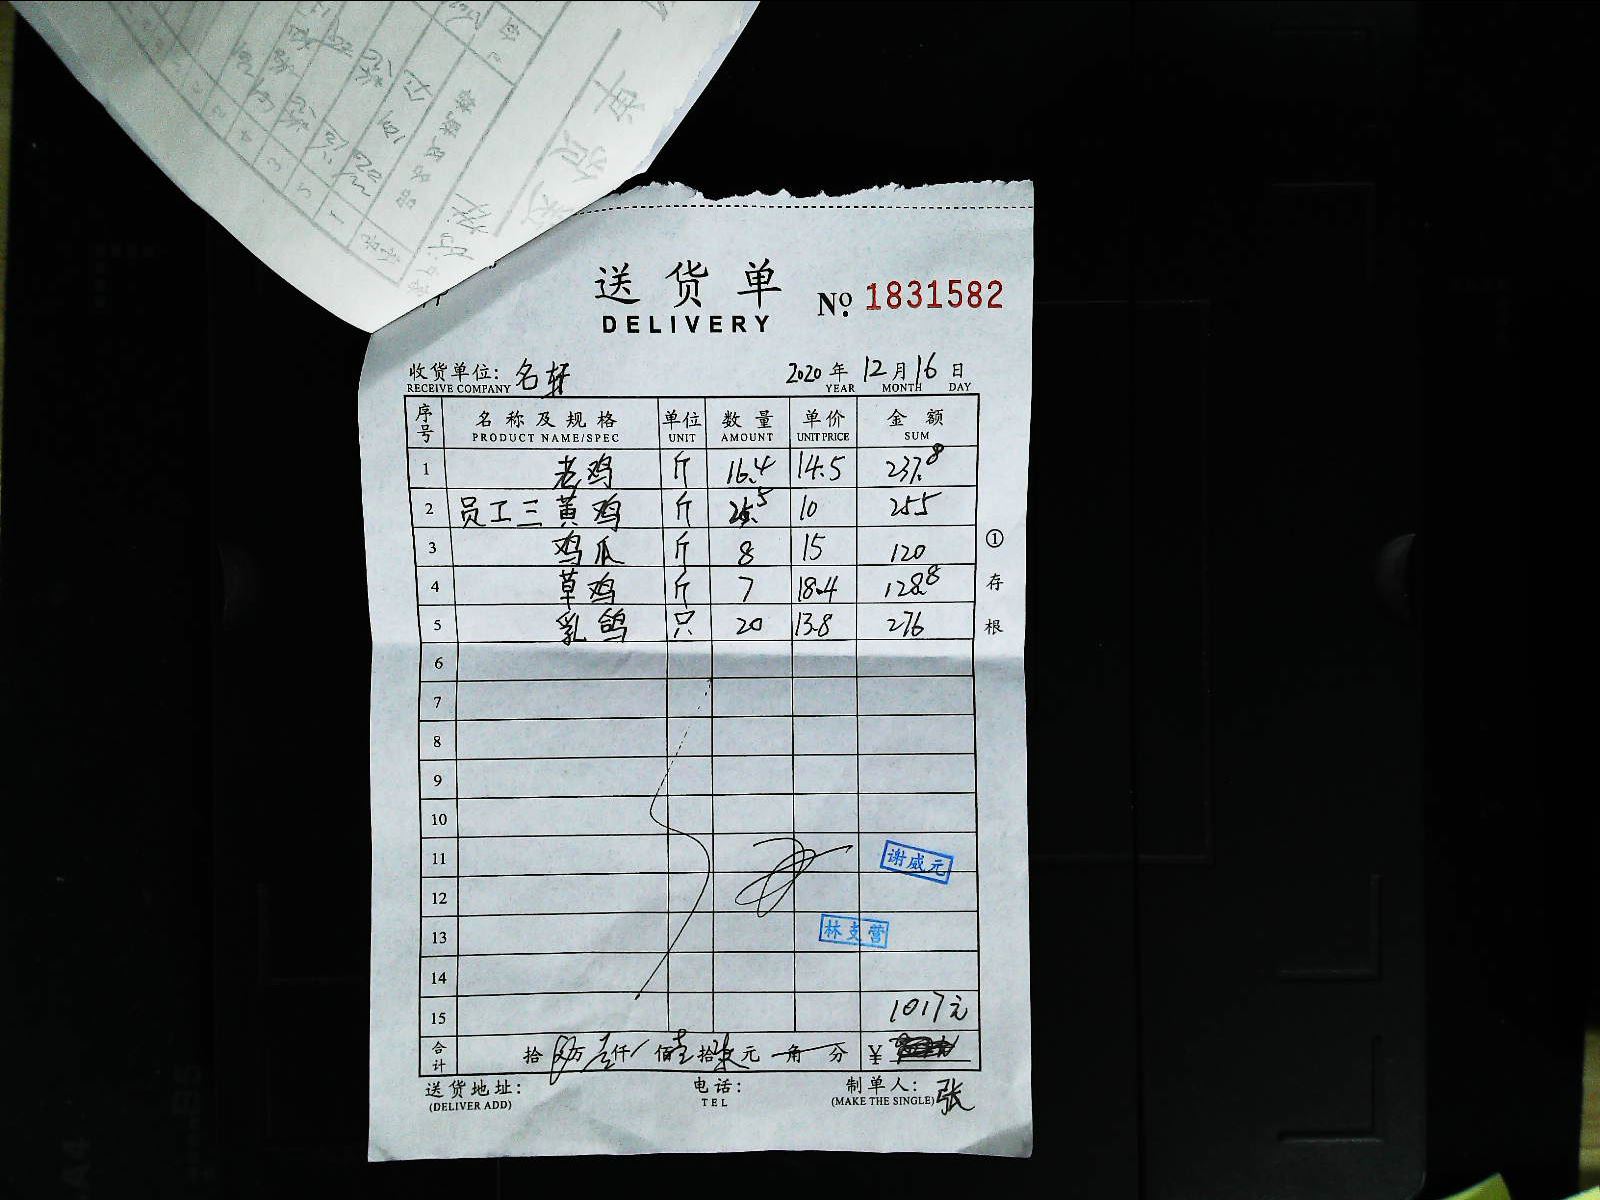 送货单
DELIVERY
№ 1831582
收货单位: 名轩 2020年12月16日
RECEIVE COMPANY YEAR MONTH DAY
序号 名称及规格 单位 数量 单价 金额
PRODUCT NAME/SPEC UNIT AMOUNT UNIT PRICE SUM
1 老鸡 斤 16.4 14.5 237.8
2 员工三黄鸡 斤 25.5 10 255
3 鸡瓜 斤 8 15 120
4 草鸡 斤 7 18.4 128.8
5 乳鸽 只 20 13.8 276
6
7
8
9
10
11 谢威元
12
13 林支营
14
15 1017元
合计 拾 万 壹仟 佰壹拾柒元 角 分 ¥
①存根
送货地址: 电话: 制单人: 张
(DELIVER ADD) TEL (MAKE THE SINGLE)